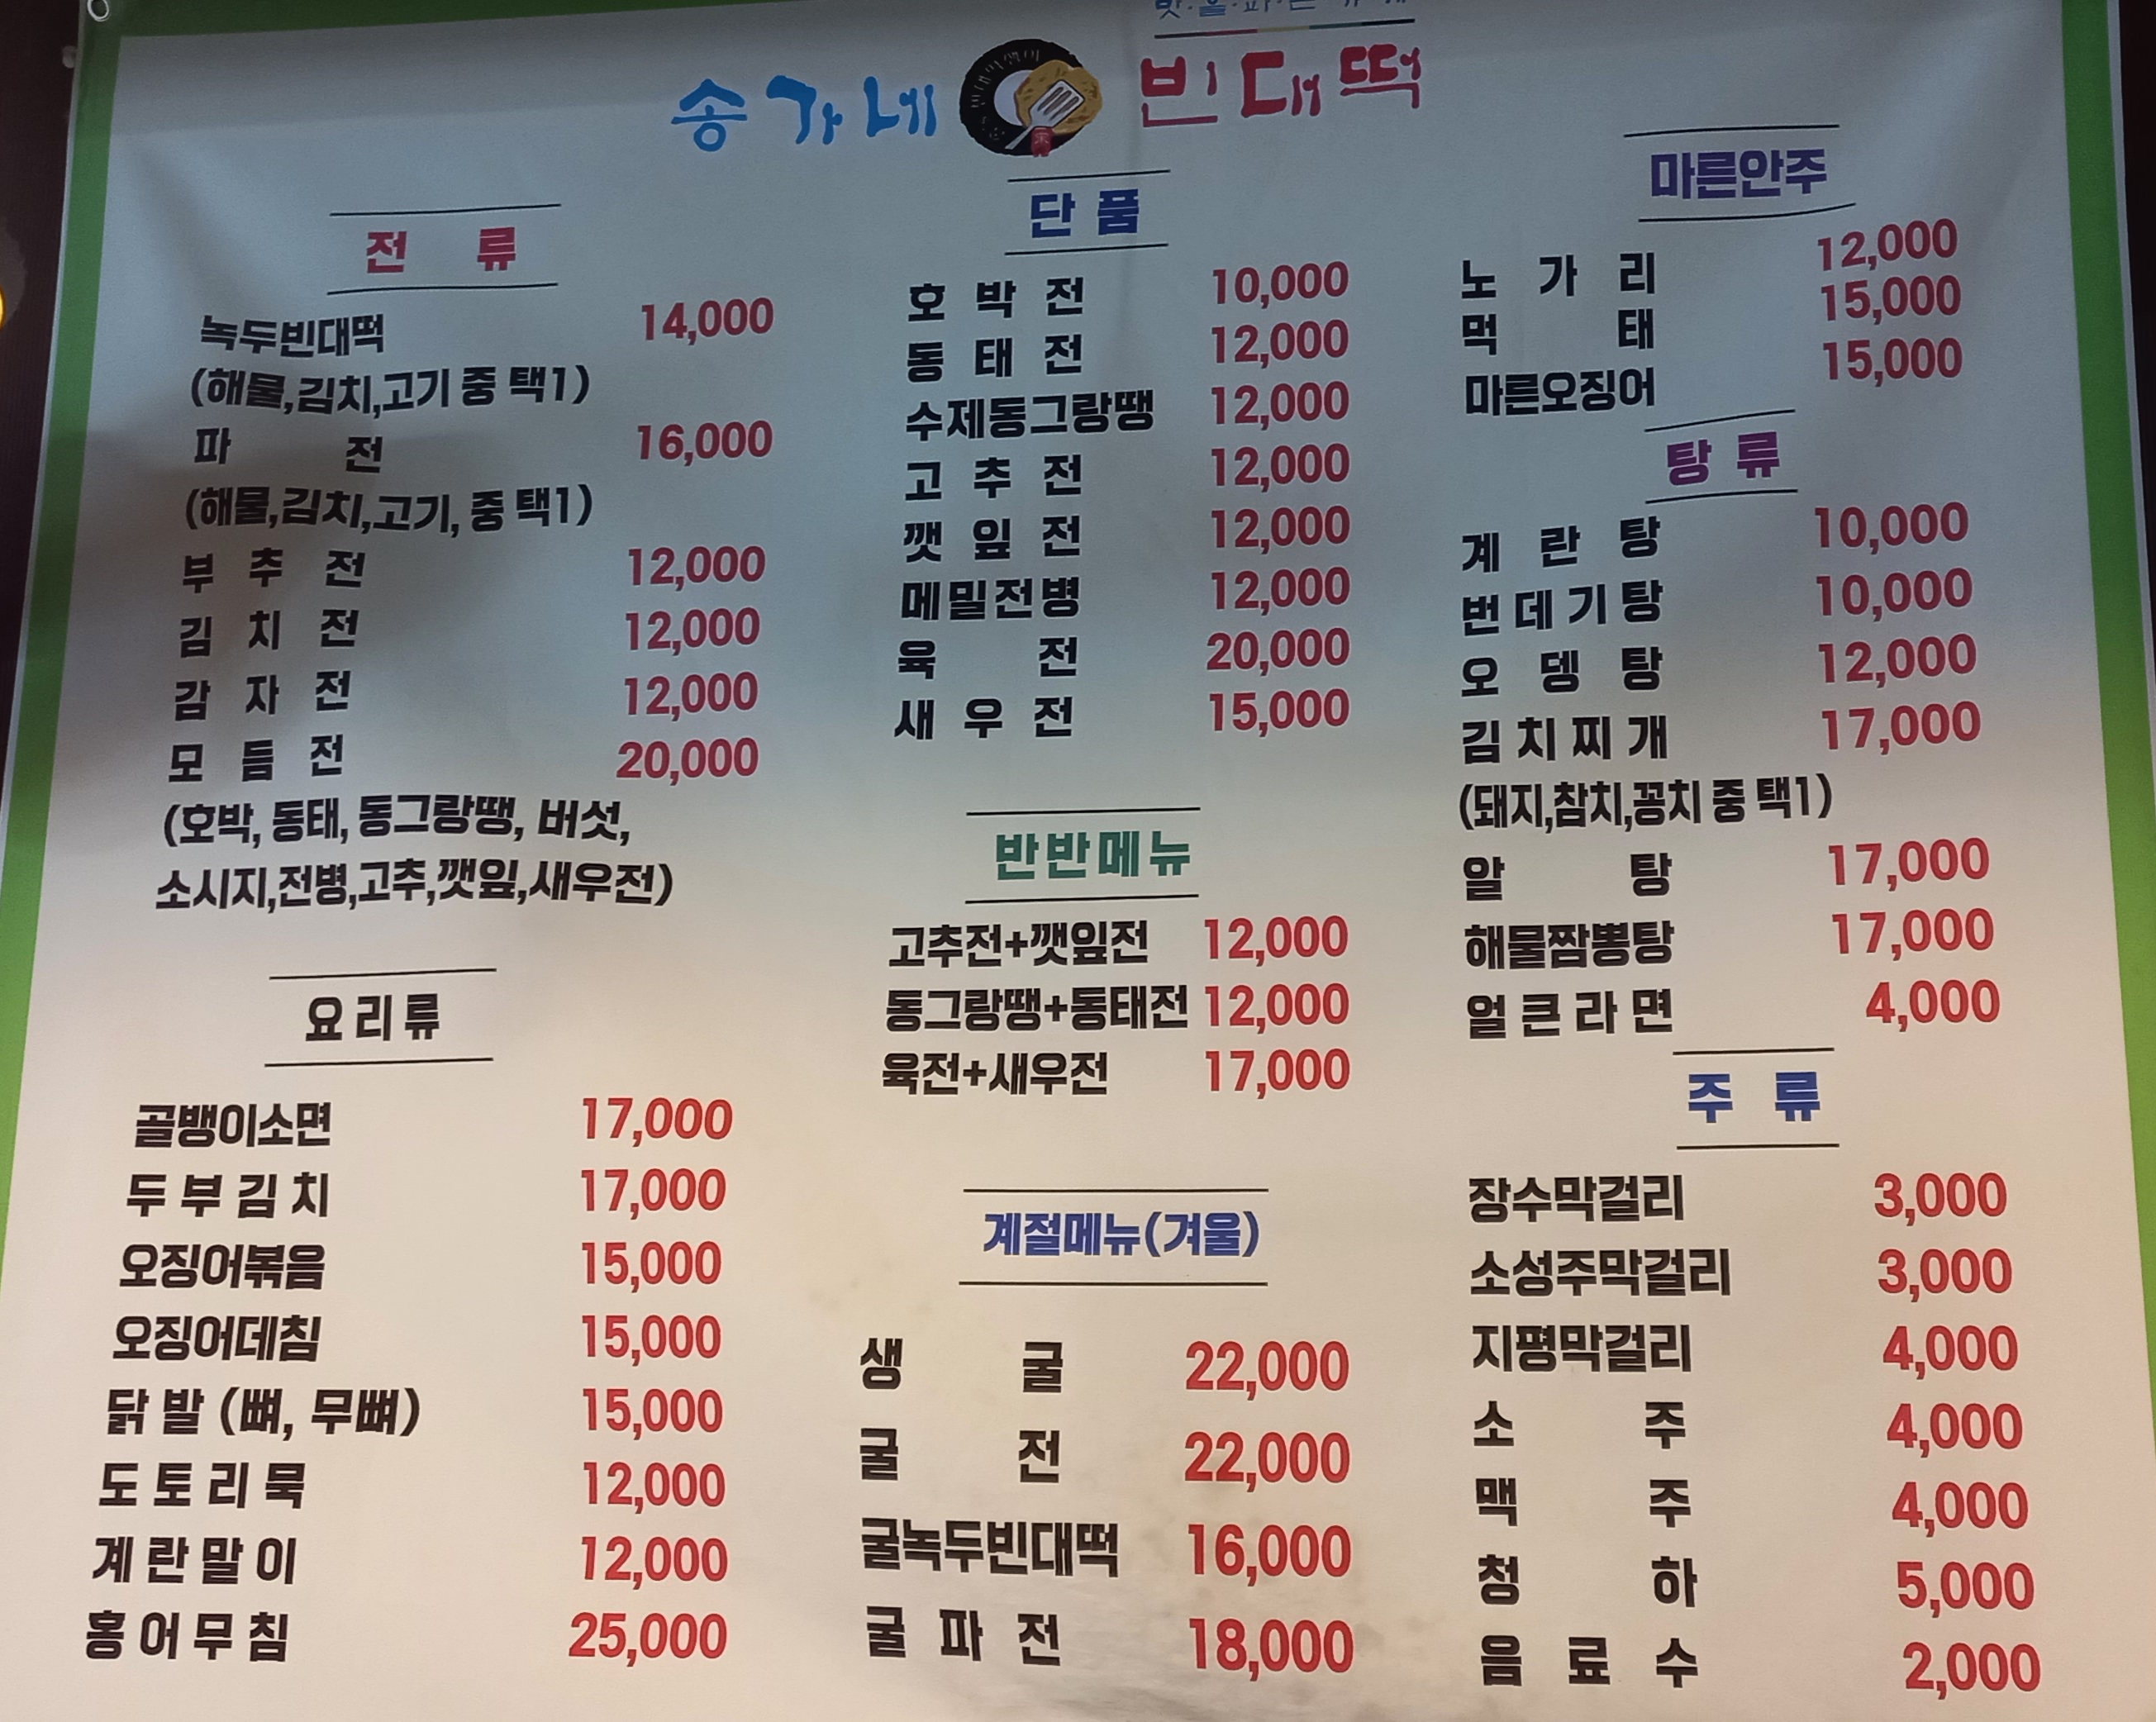 송가네 빈대떡
전 류
녹두빈대떡 14,000
(해물,김치,고기 중 택1)
파 전 16,000
(해물,김치,고기, 중 택1)
부 추 전 12,000
김 치 전 12,000
감 자 전 12,000
모 듬 전 20,000
(호박, 동태, 동그랑땡, 버섯,
소시지,전병,고추,깻잎,새우전)
요리류
골뱅이소면 17,000
두부김치 17,000
오징어볶음 15,000
오징어데침 15,000
닭발 (뼈, 무뼈) 15,000
도토리묵 12,000
계란말이 12,000
홍어무침 25,000
단 품
호 박 전 10,000
동 태 전 12,000
수제동그랑땡 12,000
고 추 전 12,000
깻 잎 전 12,000
메밀전병 12,000
육 전 20,000
새 우 전 15,000
반반메뉴
고추전+깻잎전 12,000
동그랑땡+동태전 12,000
육전+새우전 17,000
계절메뉴(겨울)
생 굴 22,000
굴 전 22,000
굴녹두빈대떡 16,000
굴 파 전 18,000
마른안주
노 가 리 12,000
먹 태 15,000
마른오징어 15,000
탕 류
계 란 탕 10,000
번데기탕 10,000
오 뎅 탕 12,000
김치찌개 17,000
(돼지,참치,꽁치 중 택1)
알 탕 17,000
해물짬뽕탕 17,000
얼큰라면 4,000
주 류
장수막걸리 3,000
소성주막걸리 3,000
지평막걸리 4,000
소 주 4,000
맥 주 4,000
청 하 5,000
음 료 수 2,000